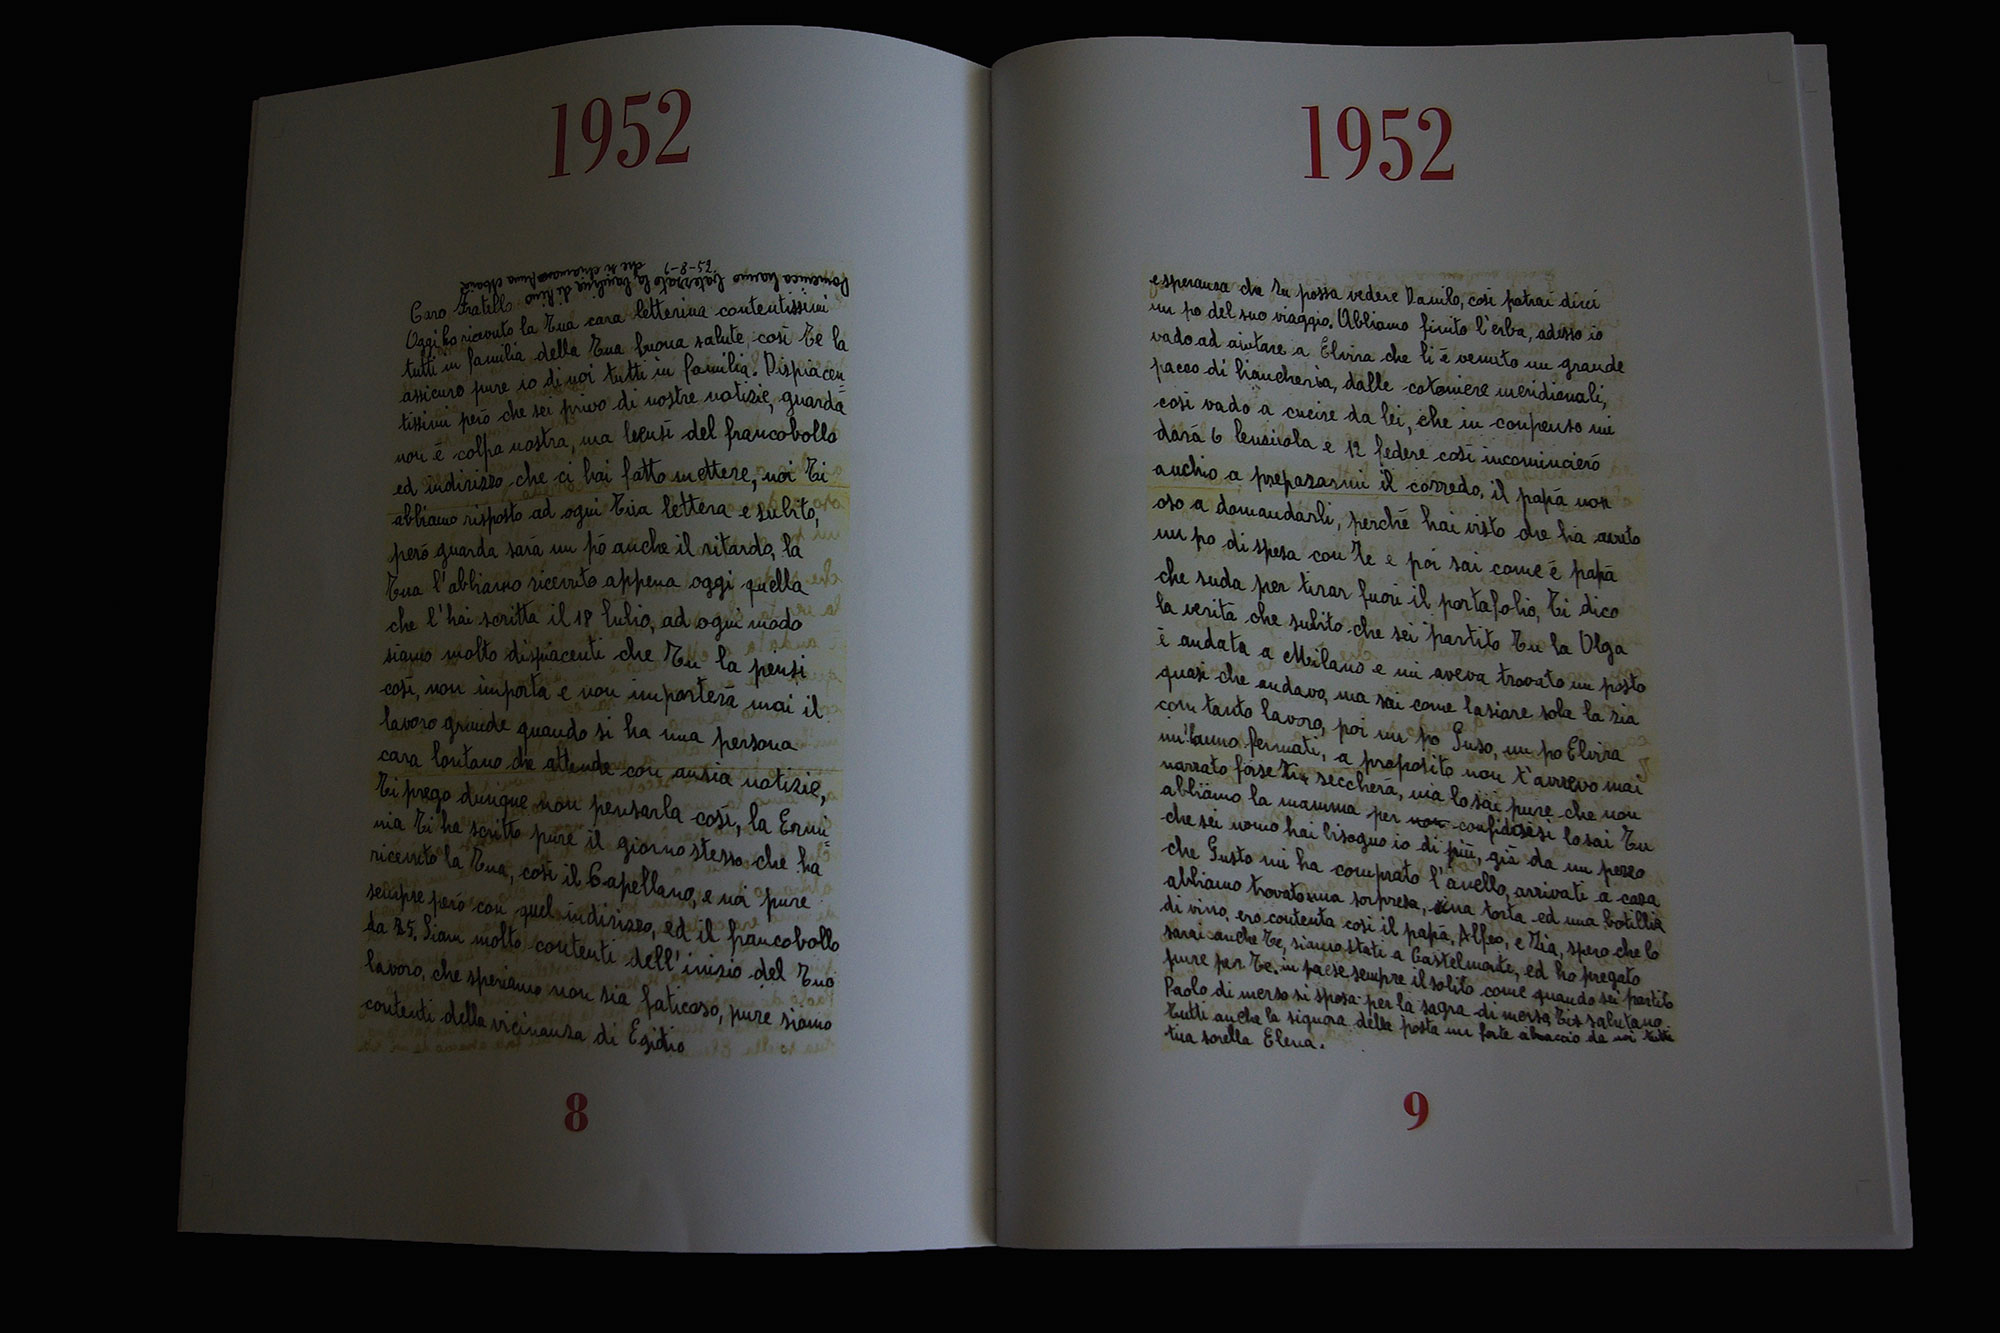 1952
Domenica hanno batezzato la bambina di Rino
che si chiamava Anna Maria
1-8-52
Caro Fratello
Oggi ho ricevuto la Tua cara letterina contentissimi
tutti in familia della Tua buona salute, così Te la
assicuro pure io di noi tutti in familia. Dispiacen=
tissimi però che sei privo di nostre notizie, guarda
non è colpa nostra, ma bensì del francobollo
ed indirizzo che ci hai fatto mettere, noi Ti
abbiamo risposto ad ogni Tua lettera e subito,
però guarda sarà un pò anche il ritardo, la
Tua l'abbiamo ricevuto appena oggi quella
che l'hai scritta il 18 lulio, ad ogni modo
siamo molto dispiacenti che Tu la pensi
così, non importa e non importerà mai il
lavoro grande quando si ha una persona
cara lontano che attende con ansia notizie,
Ti prego dunque non pensarla così, la Ermi=
nia Ti ha scritto pure il giorno stesso che ha
ricevuto la Tua, così il Capellano, e noi pure
sempre però con quel indirizzo, ed il francobollo
da 25. Siam molto contenti dell'inizio del Tuo
lavoro, che speriamo non sia faticoso, pure siamo
contenti della vicinanza di Egidio
8
1952
e speranza che Tu possa vedere Danilo, così potrai dirci
un po del suo viaggio. Abbiamo finito l'erba, adesso io
vado ad aiutare a Elvira che li è venuto un grande
pacco di biancheria, dalle cotoniere meridionali,
così vado a cucire da lei, che in conpenso mi
darà 6 lensuola e 12 federe così incomincierò
anchio a prepararmi il corredo, il papà non
oso a domandarli, perchè hai visto che ha avuto
un po di spesa con Te e poi sai come è papà
che suda per tirar fuori il portafolio, Ti dico
la verità che subito che sei partito Tu la Olga
è andata a Milano e mi aveva trovato un posto
quasi che andavo, ma sai come lasiare sola la zia
con tanto lavoro, poi un po Guso, un po Elvira
mi hanno fermati, a proposito non t'avrevo mai
narrato forse Ti seccherà, ma lo sai pure che non
abbiamo la mamma per non confidarsi lo sai Tu
che sei uomo hai bisogno io di più, già da un pezzo
che Gusto mi ha comprato l'anello, arrivati a casa
abbiamo trovato una sorpresa, una torta ed una botillia
di vino, ero contenta così il papà, Alfeo, e Zia, spero che lo
sarai anche Te, siamo stati a Castelmonte, ed ho pregato
pure per Te. in paese sempre il solito come quando sei partito
Paolo di merso si sposa per la sagra di mersa Tis salutano
tutti anche la signora della posta un forte abraccio da noi tutti
tua sorella Elena.
9